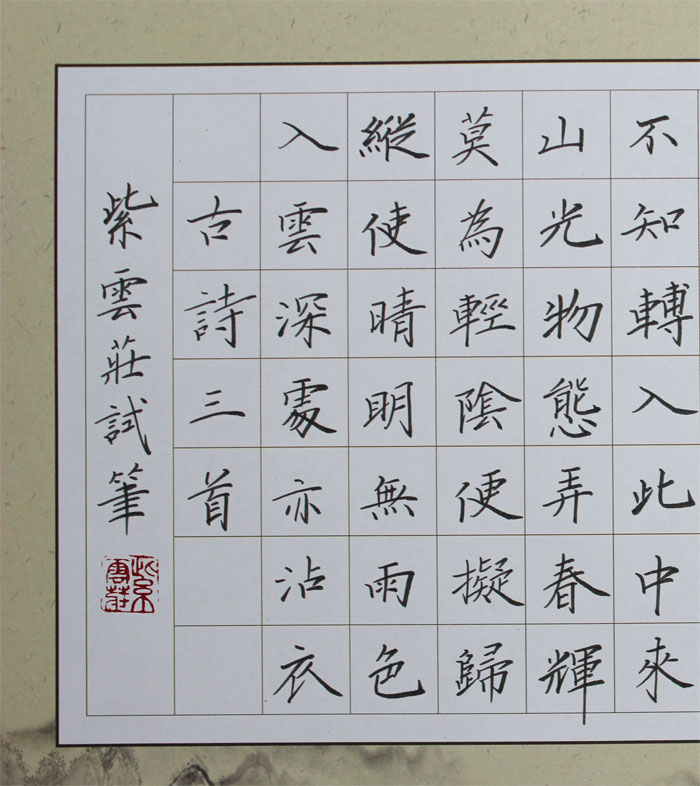 不知轉入此中來
山光物態弄春輝
莫為輕陰便擬歸
縱使晴明無雨色
入雲深處亦沾衣
古詩三首
紫雲莊試筆
紫雲莊